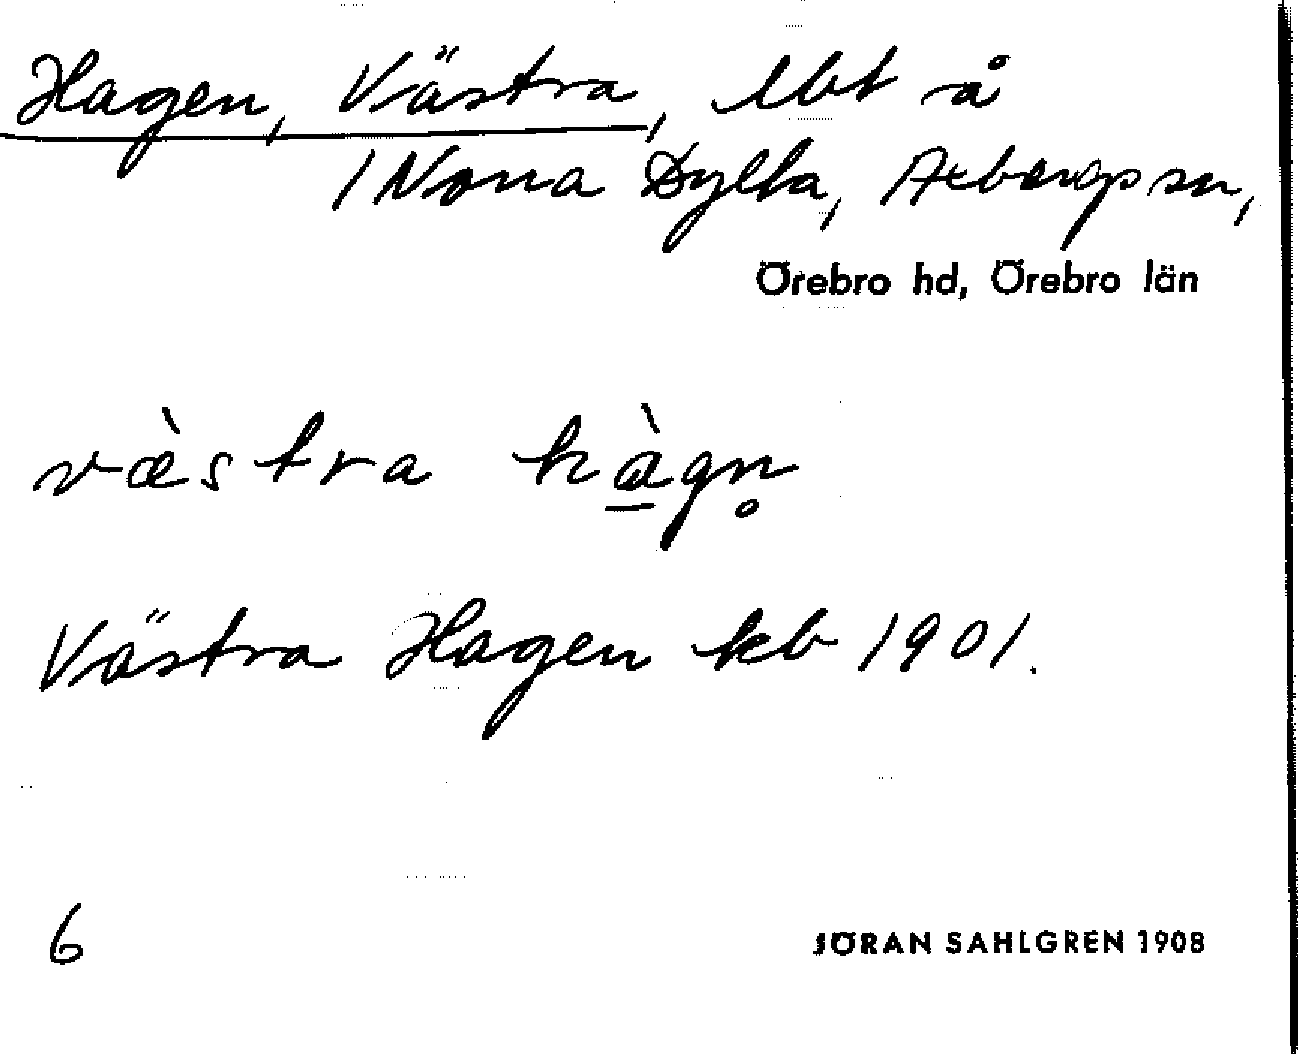 Hagen, Västra, lbt å
1 Norra Dylta, Axbergs sn,
Örebro hd, Örebro län
væ̀stra hà̠gn̥
Västra Hagen kb 1901.
6
JÖRAN SAHLGREN 1908